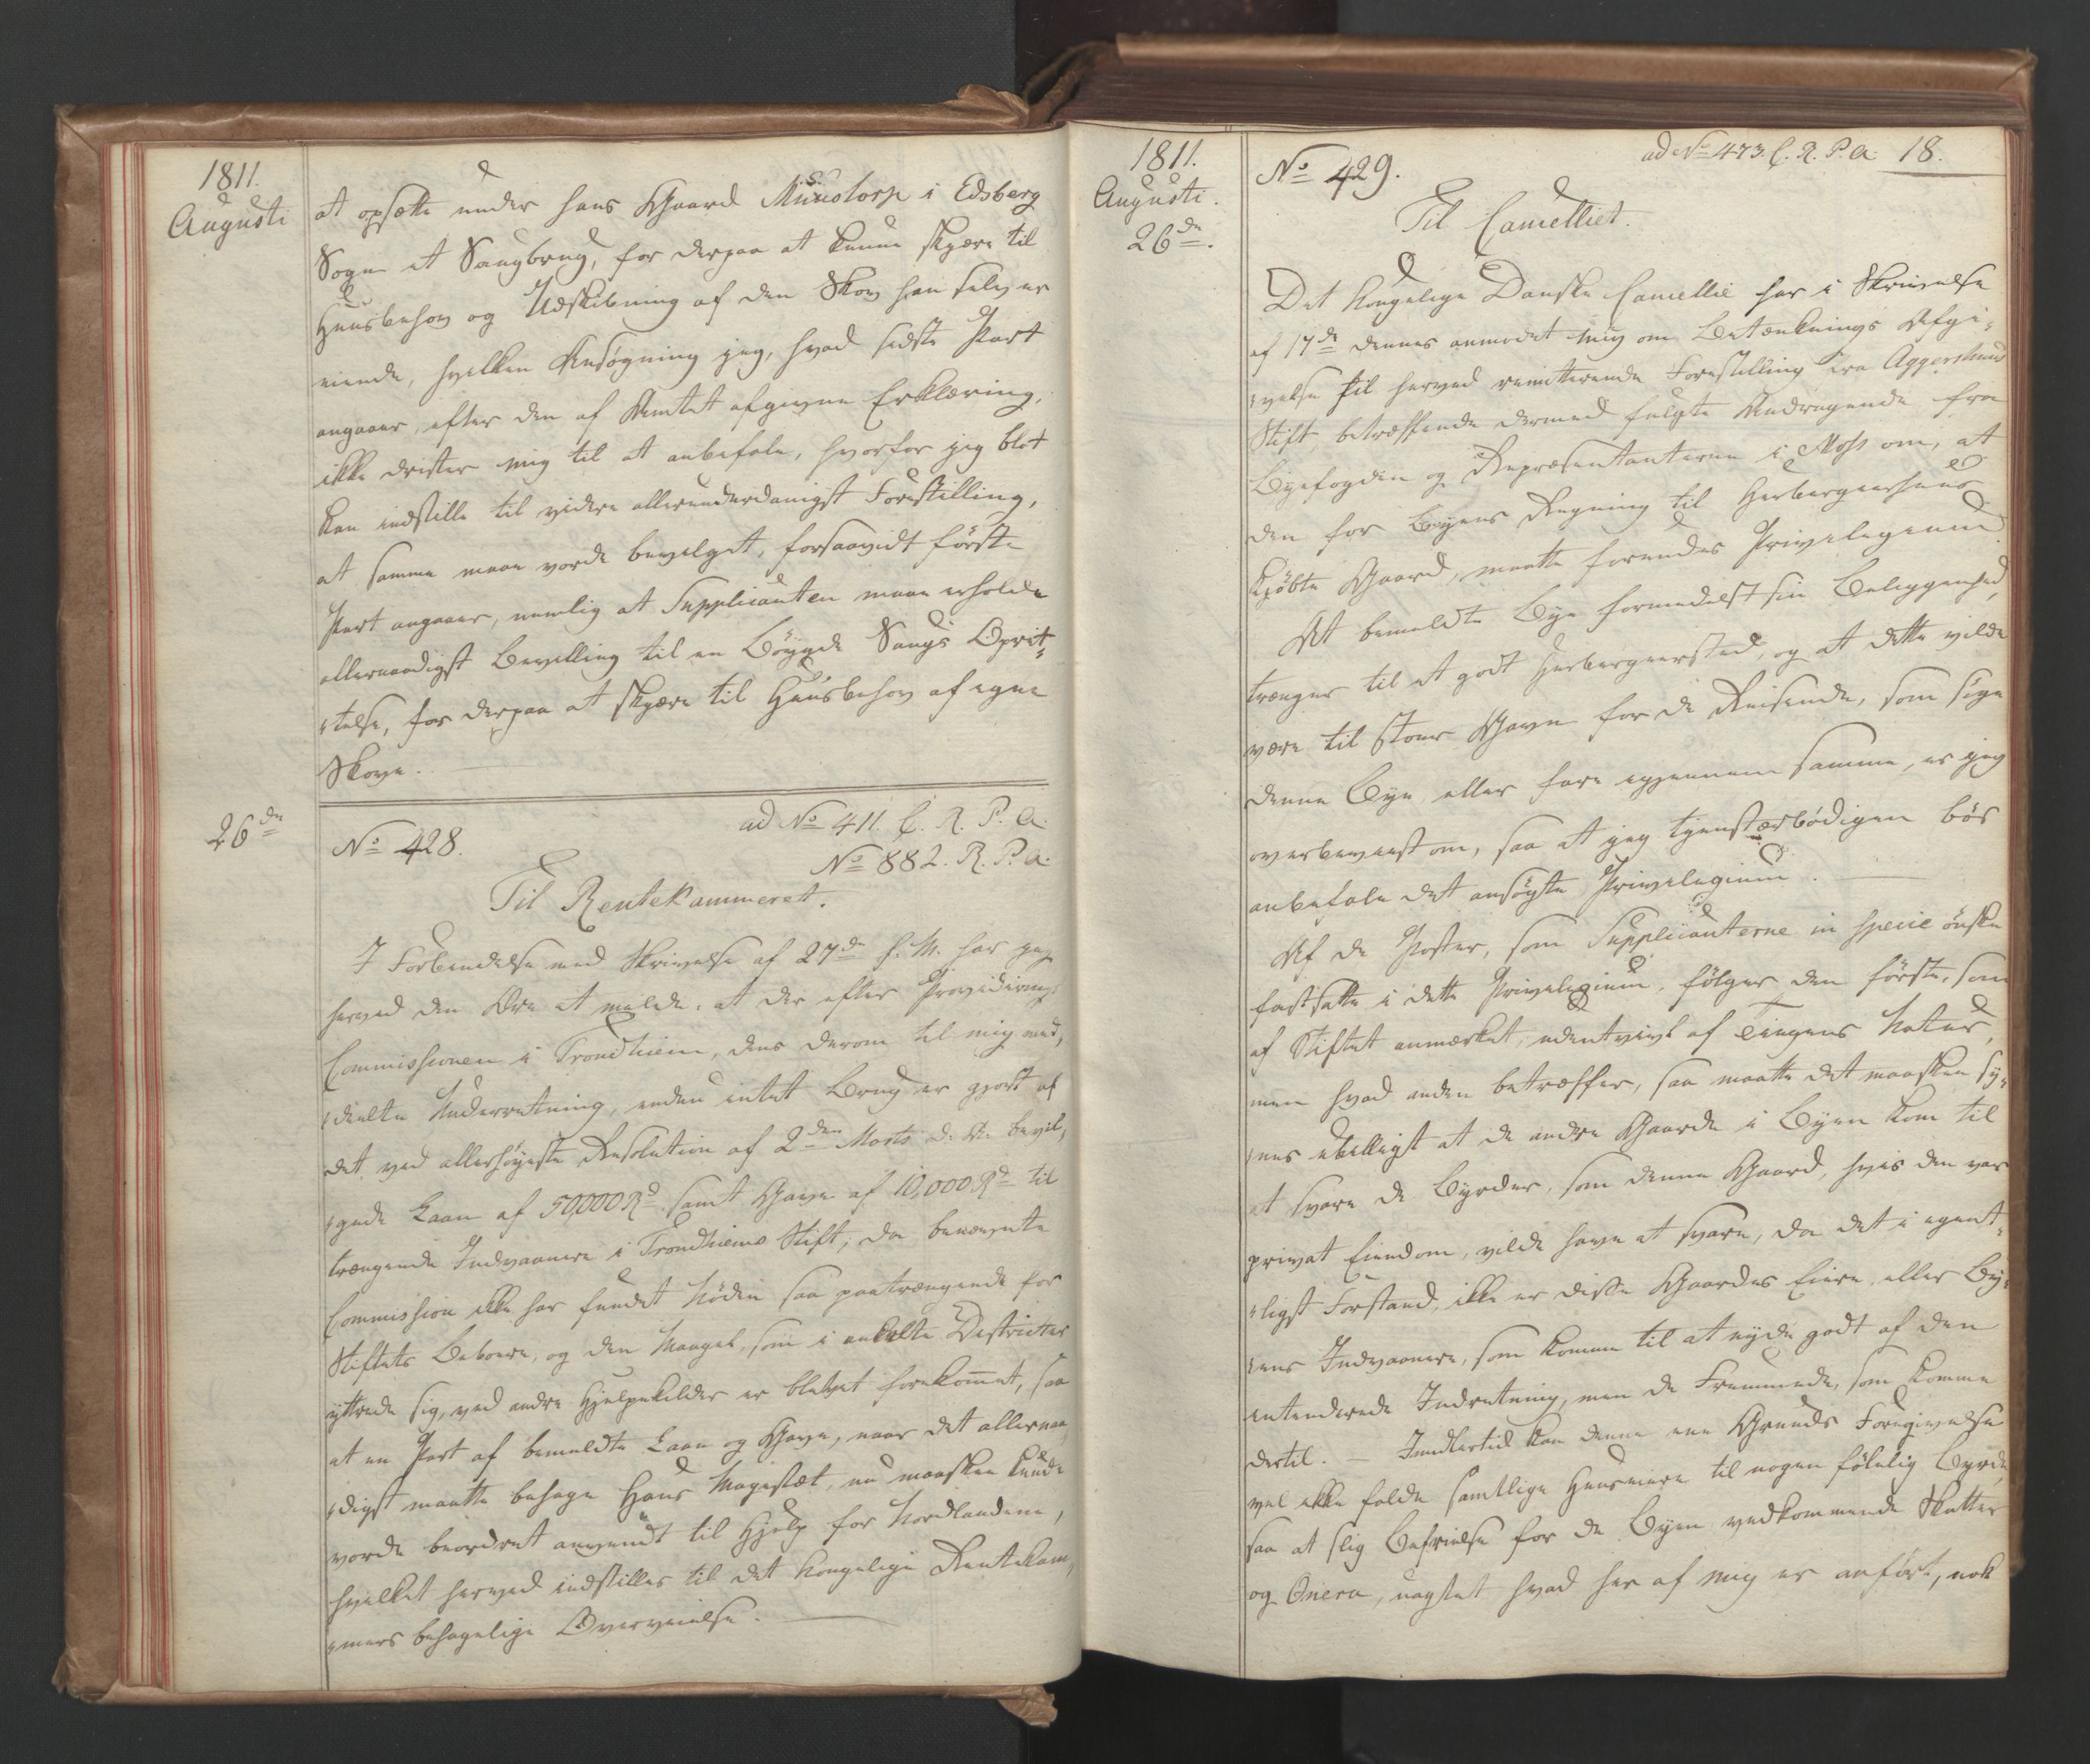 1811.
Augusti
at opsætte under hans Gaard Munstorp i Edsberg
Sogn et Saugbrug, for derpaa at kunne skjære til
Huusbehov og Udskibning af den Skov han selv er
eiende, hvilken Ansøgning jeg, hvad sidste Part
angaaer, efter den af Amtet afgivne Erklæring,
ikke drister mig til at anbefale, hvorfor jeg blot
kan indstille til videre allerunderdanigst Forestilling,
at samme maae vorde bevilget, forsaavidt første
Part angaaer, nemlig at Supplicanten maae erholde
allernaadigst Bevilling til en Bøygde Saugs Opret-
telse, for derpaa at skjære til Huusbehov af egne
Skove.
26de
No 428.
ad No 411. C. R. P. A.
No 882. R. P. A.
Til Rentekammeret.
I Forbindelse med Skrivelse af 27de f. M. har jeg
herved den Ære at melde, at der efter Provideerings
Commissionen i Trondhiem, dens derom til mig med-
deelte Underretning, endnu intet Brug er gjort af
det ved allerhøyeste Resolution af 2den Marts d. A. bevil-
gede Laan af 50,000 Rd samt Gave af 10,000 Rd til
trængende Indvaanere i Trondhiems Stift, da benævnte
Commission ikke har fundet Nøden saa paatrængende for
Stiftets Beboere, og den Mangel, som i enkelte Districter
yttrede sig, ved andre Hjelpekilder er blevet forekommet, saa
at en Part af bemeldte Laan og Gave, naar det allernaa-
digst maatte behage Hans Majestæt, nu maaskee kunde
vorde beordret anvendt til Hjelp for Nordlandene,
hvilket herved indstilles til det Kongelige Rentekam-
mers behagelige Overveielse.
1811.
Augusti.
26de.
No 429.
ad No 473. C. R. P. A. 18.
Til Cancelliet.
Det Kongelige Danske Cancellie har i Skrivelse
af 17de dennes anmodet mig om Betænknings Afgi-
velse til herved remitterende Forestilling fra Aggershuus
Stift, betræffende dermed fulgte Andragende fra
Byefogden og Repræsentanterne i Moss om, at
den for Byens Regning til Herbergeerhuus
kjøbte Gaard, maatte forundes Privilegium.
At bemeldte Bye formedelst sin Beliggenhed,
trænger til et godt Herbergeersted, og at dette vilde
være til stor Gavn for de Reisende, som søge
denne Bye eller fare igjennem samme, er jeg
overbeviist om, saa at jeg tjenstærbødigen bør
anbefale det ansøgte Privilegium.
Af de Poster, som Supplicanterne in specie ønske
fastsatte i dette Privilegium, følger den første, som
af Stiftet anmærket, udentvivl af Tingens Natur,
men hvad anden betræffer, saa maatte det maaskee sy-
nes ubilligt at de andre Gaarde i Byen kom til
at svare de Byrder, som denne Gaard, hvis den var
privat Eiendom, vilde have at svare, da det i egent-
ligst Forstand, ikke er disse Gaardes Eiere, eller By-
ens Indvaanere, som komme til at nyde godt af den
intenderede Indretning, men de Fremmede, som komme
dertil. — Imidlertid kan denne ene Grunds Foregivelse
vel ikke falde samtlige Huuseiere til nogen følelig Byrde
saa at slig Befrielse for de Byen vedkommende Skatter
og Onera, uagtet hvad her af mig er anført, nok